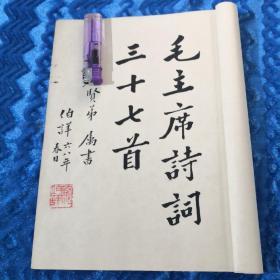 毛主席詩詞
三十七首
賢弟屬書
伯詳六八年
春日